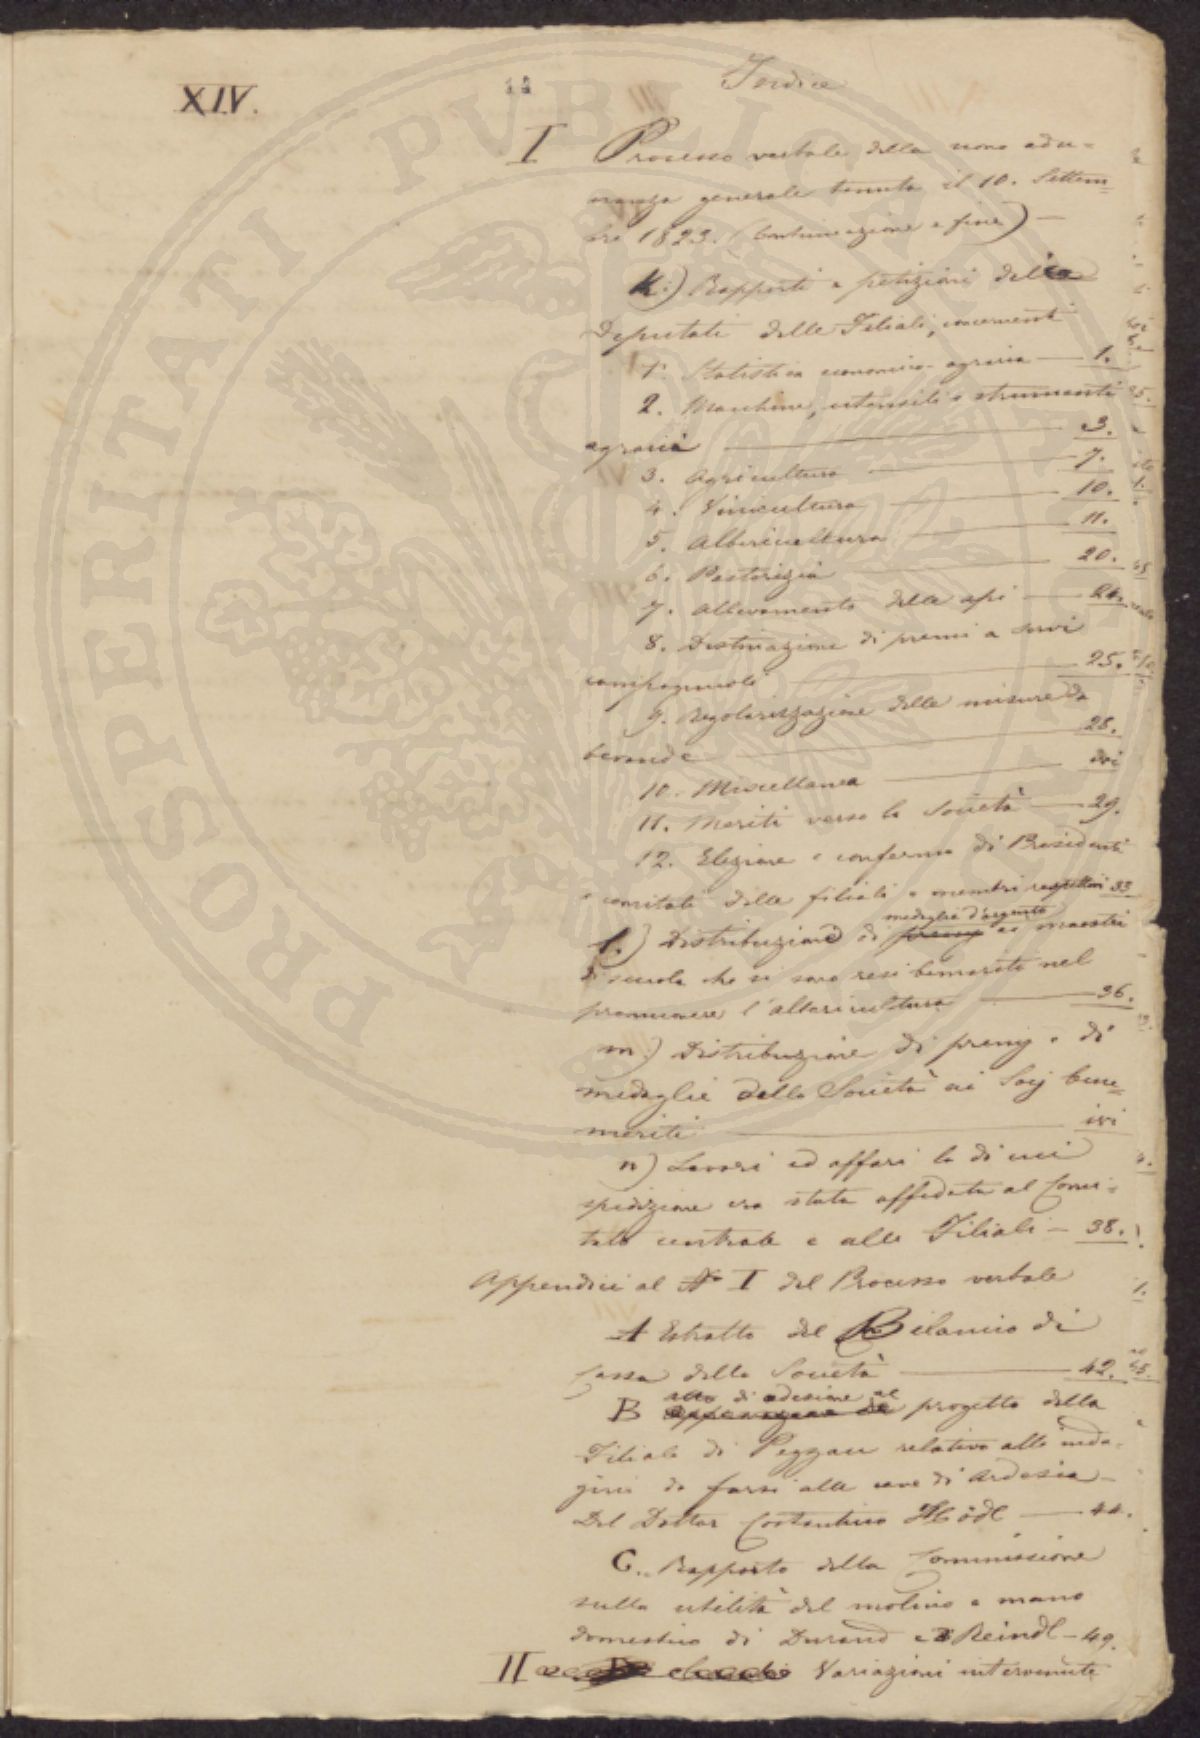 XIV.
11
Indice
I Processo verbale della nona adu-
nanza generale tenuta il 10. Settem-
bre 1823. (Continuazione e fine) —
K.) Rapporti e petizioni dei
Deputati delle Filiali, concernenti
1. Statistica economico-agraria — 1.
2. Macchine, utensili e strumenti
agrari — 3.
3. Agricoltura — 7.
4. Vinicultura — 10.
5. Albericultura — 11.
6. Pastorizia — 20.
7. Allevamento delle api — 24.
8. Destinazione di premi a servi
campagnuoli — 25.
9. Regolarizzazione delle misure da
bevande — 28.
10. Miscellanea — ivi
11. Meriti verso la Società — 29.
12. Elezione e conferma di Presidenti
e comitati delle filiali e membri rispettivi 33
l.) Distribuzione di medaglie d'argento ai maestri
di scuola che si sono resi benemeriti nel
promuovere l'albericultura — 36.
m.) Distribuzione di premj e di
medaglie della Società ai Socj bene-
meriti — ivi
n) Lavori ed affari la di cui
spedizione era stata affidata al Comi-
tato centrale e alle Filiali — 38.
Appendici al No I del Processo verbale
A Estratto del Bilancio di
Cassa della Società — 42.
B atto di adesione al progetto della
Filiale di Peggau relativo alle inda-
gini da farsi alle cave di Ardesia
Del Dottor Costantino Hödl — 44.
C. Rapporto della Commissione
sulla utilità del molino a mano
domestico di Durand e Reindl — 49.
II Variazioni intervenute